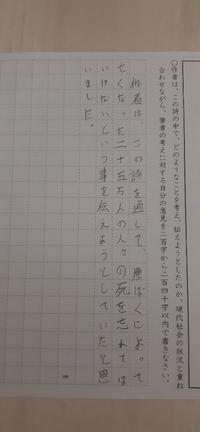 ○作者は、この詩の中で、どのようなことを考え、伝えようとしたのか。現代社会の状況と重ね
合わせながら、筆者の考えに対する自分の意見を二百字から二百四十字以内で書きなさい。
作者は、この詩を通して、原ばくによって
亡くなった二十五万人の人々の死を忘れては
いけないという事を伝えようとしていたと思
いました。